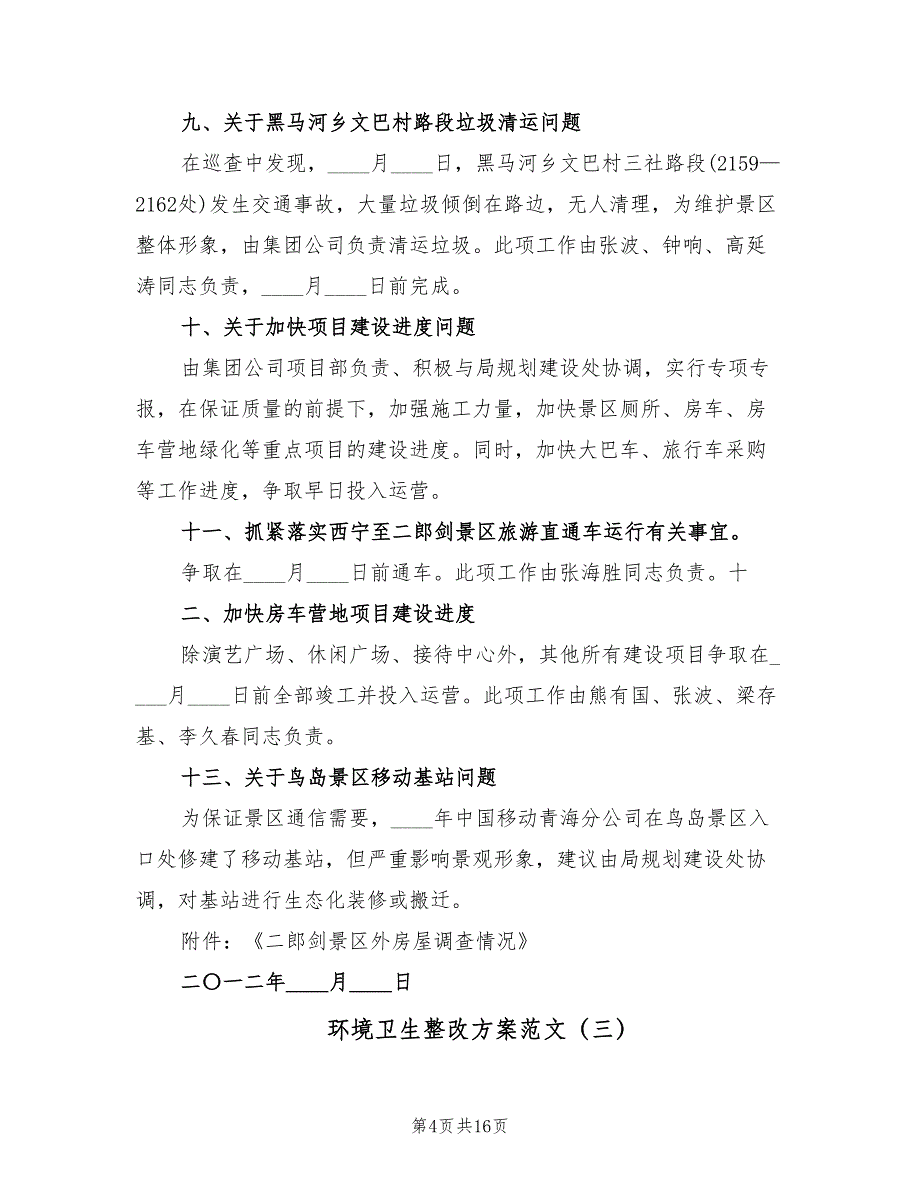 九、关于黑马河乡文巴村路段垃圾清运问题
在巡查中发现，____月____日，黑马河乡文巴村三社路段(2159—
2162处)发生交通事故，大量垃圾倾倒在路边，无人清理，为维护景区
整体形象，由集团公司负责清运垃圾。此项工作由张波、钟响、高延
涛同志负责，____月____日前完成。
十、关于加快项目建设进度问题
由集团公司项目部负责、积极与局规划建设处协调，实行专项专
报，在保证质量的前提下，加强施工力量，加快景区厕所、房车、房
车营地绿化等重点项目的建设进度。同时，加快大巴车、旅行车采购
等工作进度，争取早日投入运营。
十一、抓紧落实西宁至二郎剑景区旅游直通车运行有关事宜。
争取在____月____日前通车。此项工作由张海胜同志负责。十
二、加快房车营地项目建设进度
除演艺广场、休闲广场、接待中心外，其他所有建设项目争取在_
___月____日前全部竣工并投入运营。此项工作由熊有国、张波、梁存
基、李久春同志负责。
十三、关于鸟岛景区移动基站问题
为保证景区通信需要，____年中国移动青海分公司在鸟岛景区入
口处修建了移动基站，但严重影响景观形象，建议由局规划建设处协
调，对基站进行生态化装修或搬迁。
附件：《二郎剑景区外房屋调查情况》
二〇一二年____月____日
环境卫生整改方案范文（三）
第4页共16页